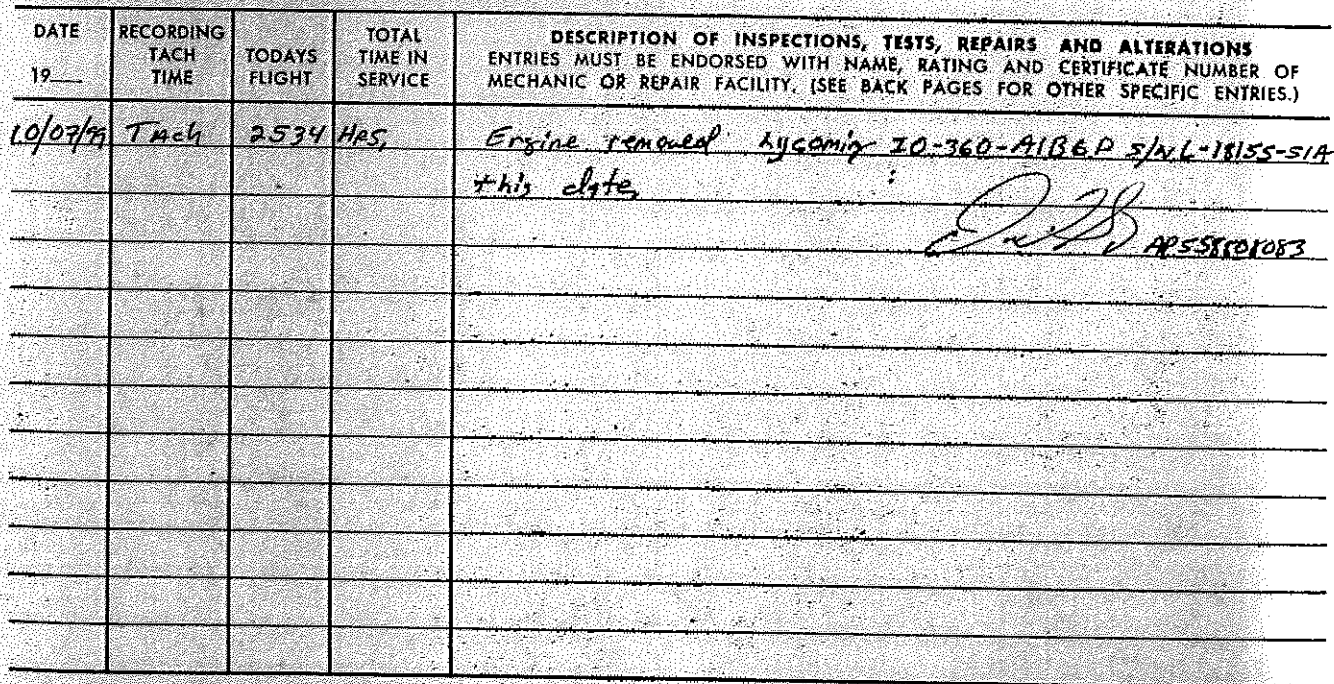 DATE RECORDING TACH TIME TODAYS FLIGHT TOTAL TIME IN SERVICE DESCRIPTION OF INSPECTIONS, TESTS, REPAIRS AND ALTERATIONS
19__ ENTRIES MUST BE ENDORSED WITH NAME, RATING AND CERTIFICATE NUMBER OF
MECHANIC OR REPAIR FACILITY. (SEE BACK PAGES FOR OTHER SPECIFIC ENTRIES.)
10/07/99 Tach 2534 HRS, Engine removed Lycoming IO-360-A1B6D S/N L-18155-51A
this date,